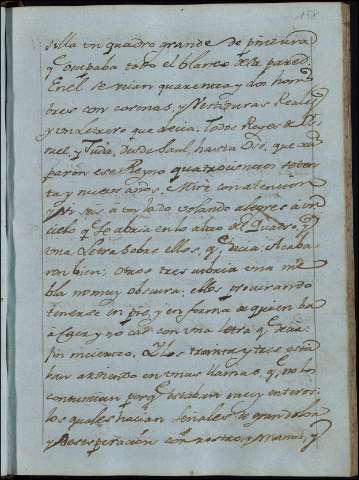 158
della un quadro grande de pintura
q ocupaba todo el blanco de la pared.
En el se veian quarenta y dos hom
bres con coronas, y vestiduras Reales
y un Letrero que decia: Todos Reyes de Is
rael, y Juda, desde Saul, hasta
paron ese Reyno quatrocientos
ta y nueve años. Miré con atencion
y vi à un lado volando alegres à un
cielo q se abria en lo alto del Quadro, y
una Letra sobre ellos, q decia: Acaba
ron bien: otros tres cubria una nie
bla no muy obscura: ellos procurando
tenerse en pie, y en forma de quien ba
à caer, y no cae con una letra q decia:
fin incierto. Y los treinta y tres esta
ban ardiendo en unas llamas, q no los
consumian porq estaban muy enteros
los quales hacian señales de gran dolor
y desesperacion con rostro, y manos, y